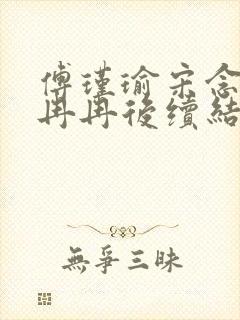 傅瑾瑜宋念
冉冉後續結
無爭三昧